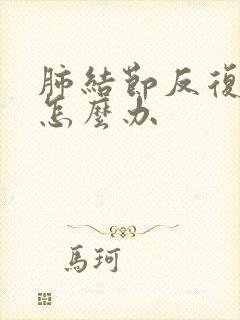 肺結節反復
怎麼办
馬珂